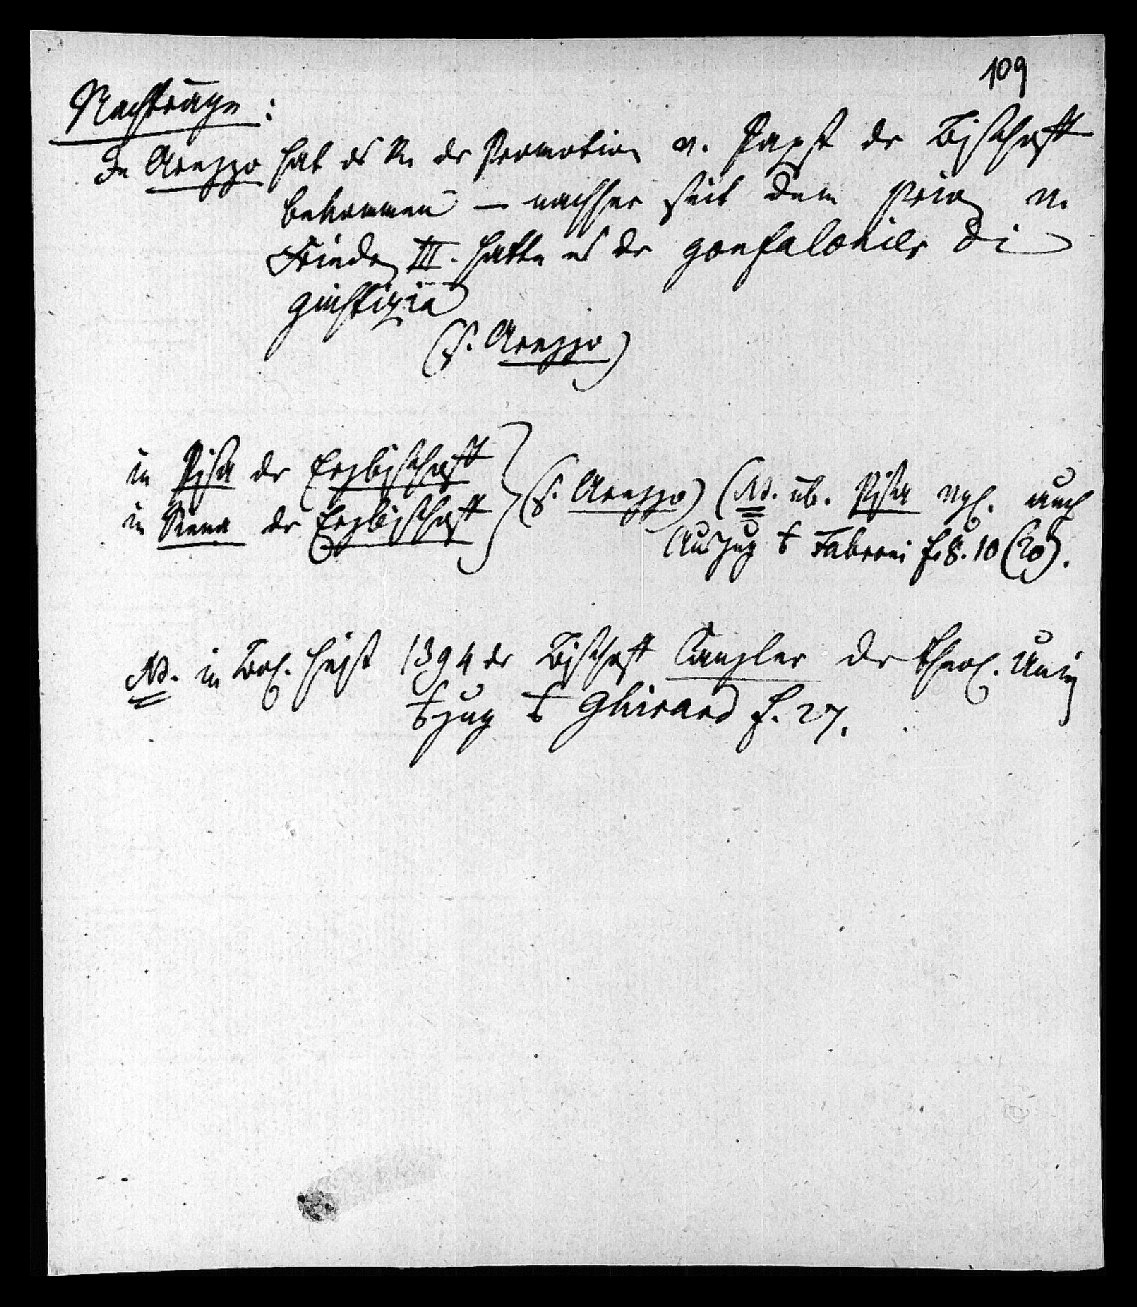 109
Nachträge:
In Arezzo hat das R. der Promotion v. Papst der Bischoff
bekommen — nachher seit dem Priv v.
Friedr III. hatte es der gonfalonier di
giustizia
(S. Arezzo)
in Pisa der Erzbischoff
in Siena der Erzbischoff } (S. Arezzo) (NB. üb. Pisa vgl. auch
Auszug Fabroni f. 8. 10 (20).
NB. in Bol. heißt 1394 der Bischoff Canzler der theol. Univ
Ghirard f. 27.